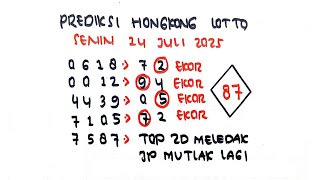 PREDIKSI HONGKONG LOTTO
SENIN 24 JULI 2025
0618> 72 EKOR
0012> 94 EKOR
4439> 05 EKOR
7105> 72 EKOR
7587> TOP 2D MELEDAK
JP MUTLAK LAGI
87